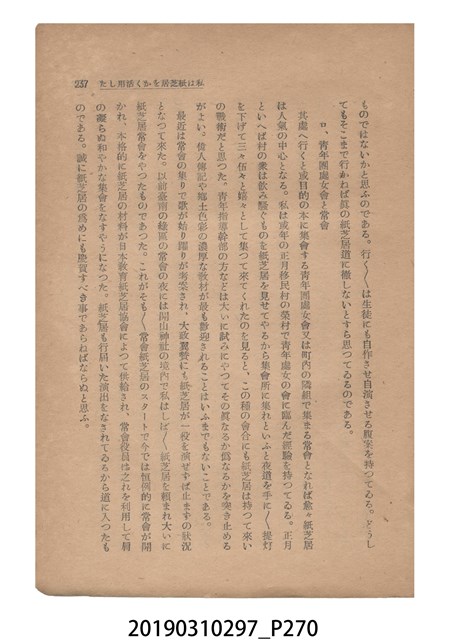 237 私は紙芝居をかく活用した
ものではないかと思ふのである。行く〳〵は生徒にも自作させ自演させる腹案を持つてゐる。どうし
てもそこまで行かねば眞の紙芝居道に徹しないとすら思つてゐるのである。
ロ、青年團處女會と常會
其處へ行くと或目的の本に集會する青年團處女會又は町內の隣組で集まる常會となれば愈々紙芝居
は人氣の中心となる。私は或年の正月移民村の榮村で青年處女の會に臨んだ經驗を持つてゐる。正月
といへば村の業は飲み騷ぐものを紙芝居を見せてやるから集會所に集れといふと夜道を手に〳〵提灯
を下げて三々伍々と嬉々として集つて來てくれたのを見ると、この種の會合にも紙芝居は持つて來い
の戰術だと思つた。青年指導幹部の方などは大いに試みにやつてその眞なるか僞なるかを突き止める
がよい。偉人傳記や鄕土色彩の濃厚な教材が最も歡迎されることはいふまでもないことである。
最近は常會の集りで歌が始り踊りが考案され、大政翼贊にも紙芝居が一役を演ぜすば止ますの狀況
となつて來た。以前臺南の綠區の常會の夜には開山神社の境內で私はしば〳〵紙芝居を賴まれ大いに
紙芝居常會をやつたものであつた。これがそも〳〵常會紙芝居のスタートで今では恒例的に常會が開
かれ、本格的に紙芝居の材料が日本教育紙芝居協會によつて供給され、常會役員は之れを利用して肩
の凝らぬ和やかな集會をなすやうになつた。紙芝居も行届いた演出をなされてゐるから道に入つたも
のである。誠に紙芝居の爲めにも慶賀すべき事であらねばならぬと思ふ。
20190310297_P270